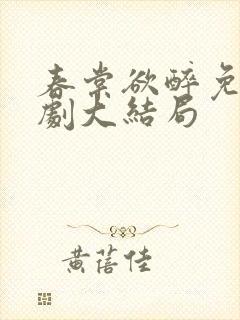 春棠欲醉免
劇大結局
黄蓓佳